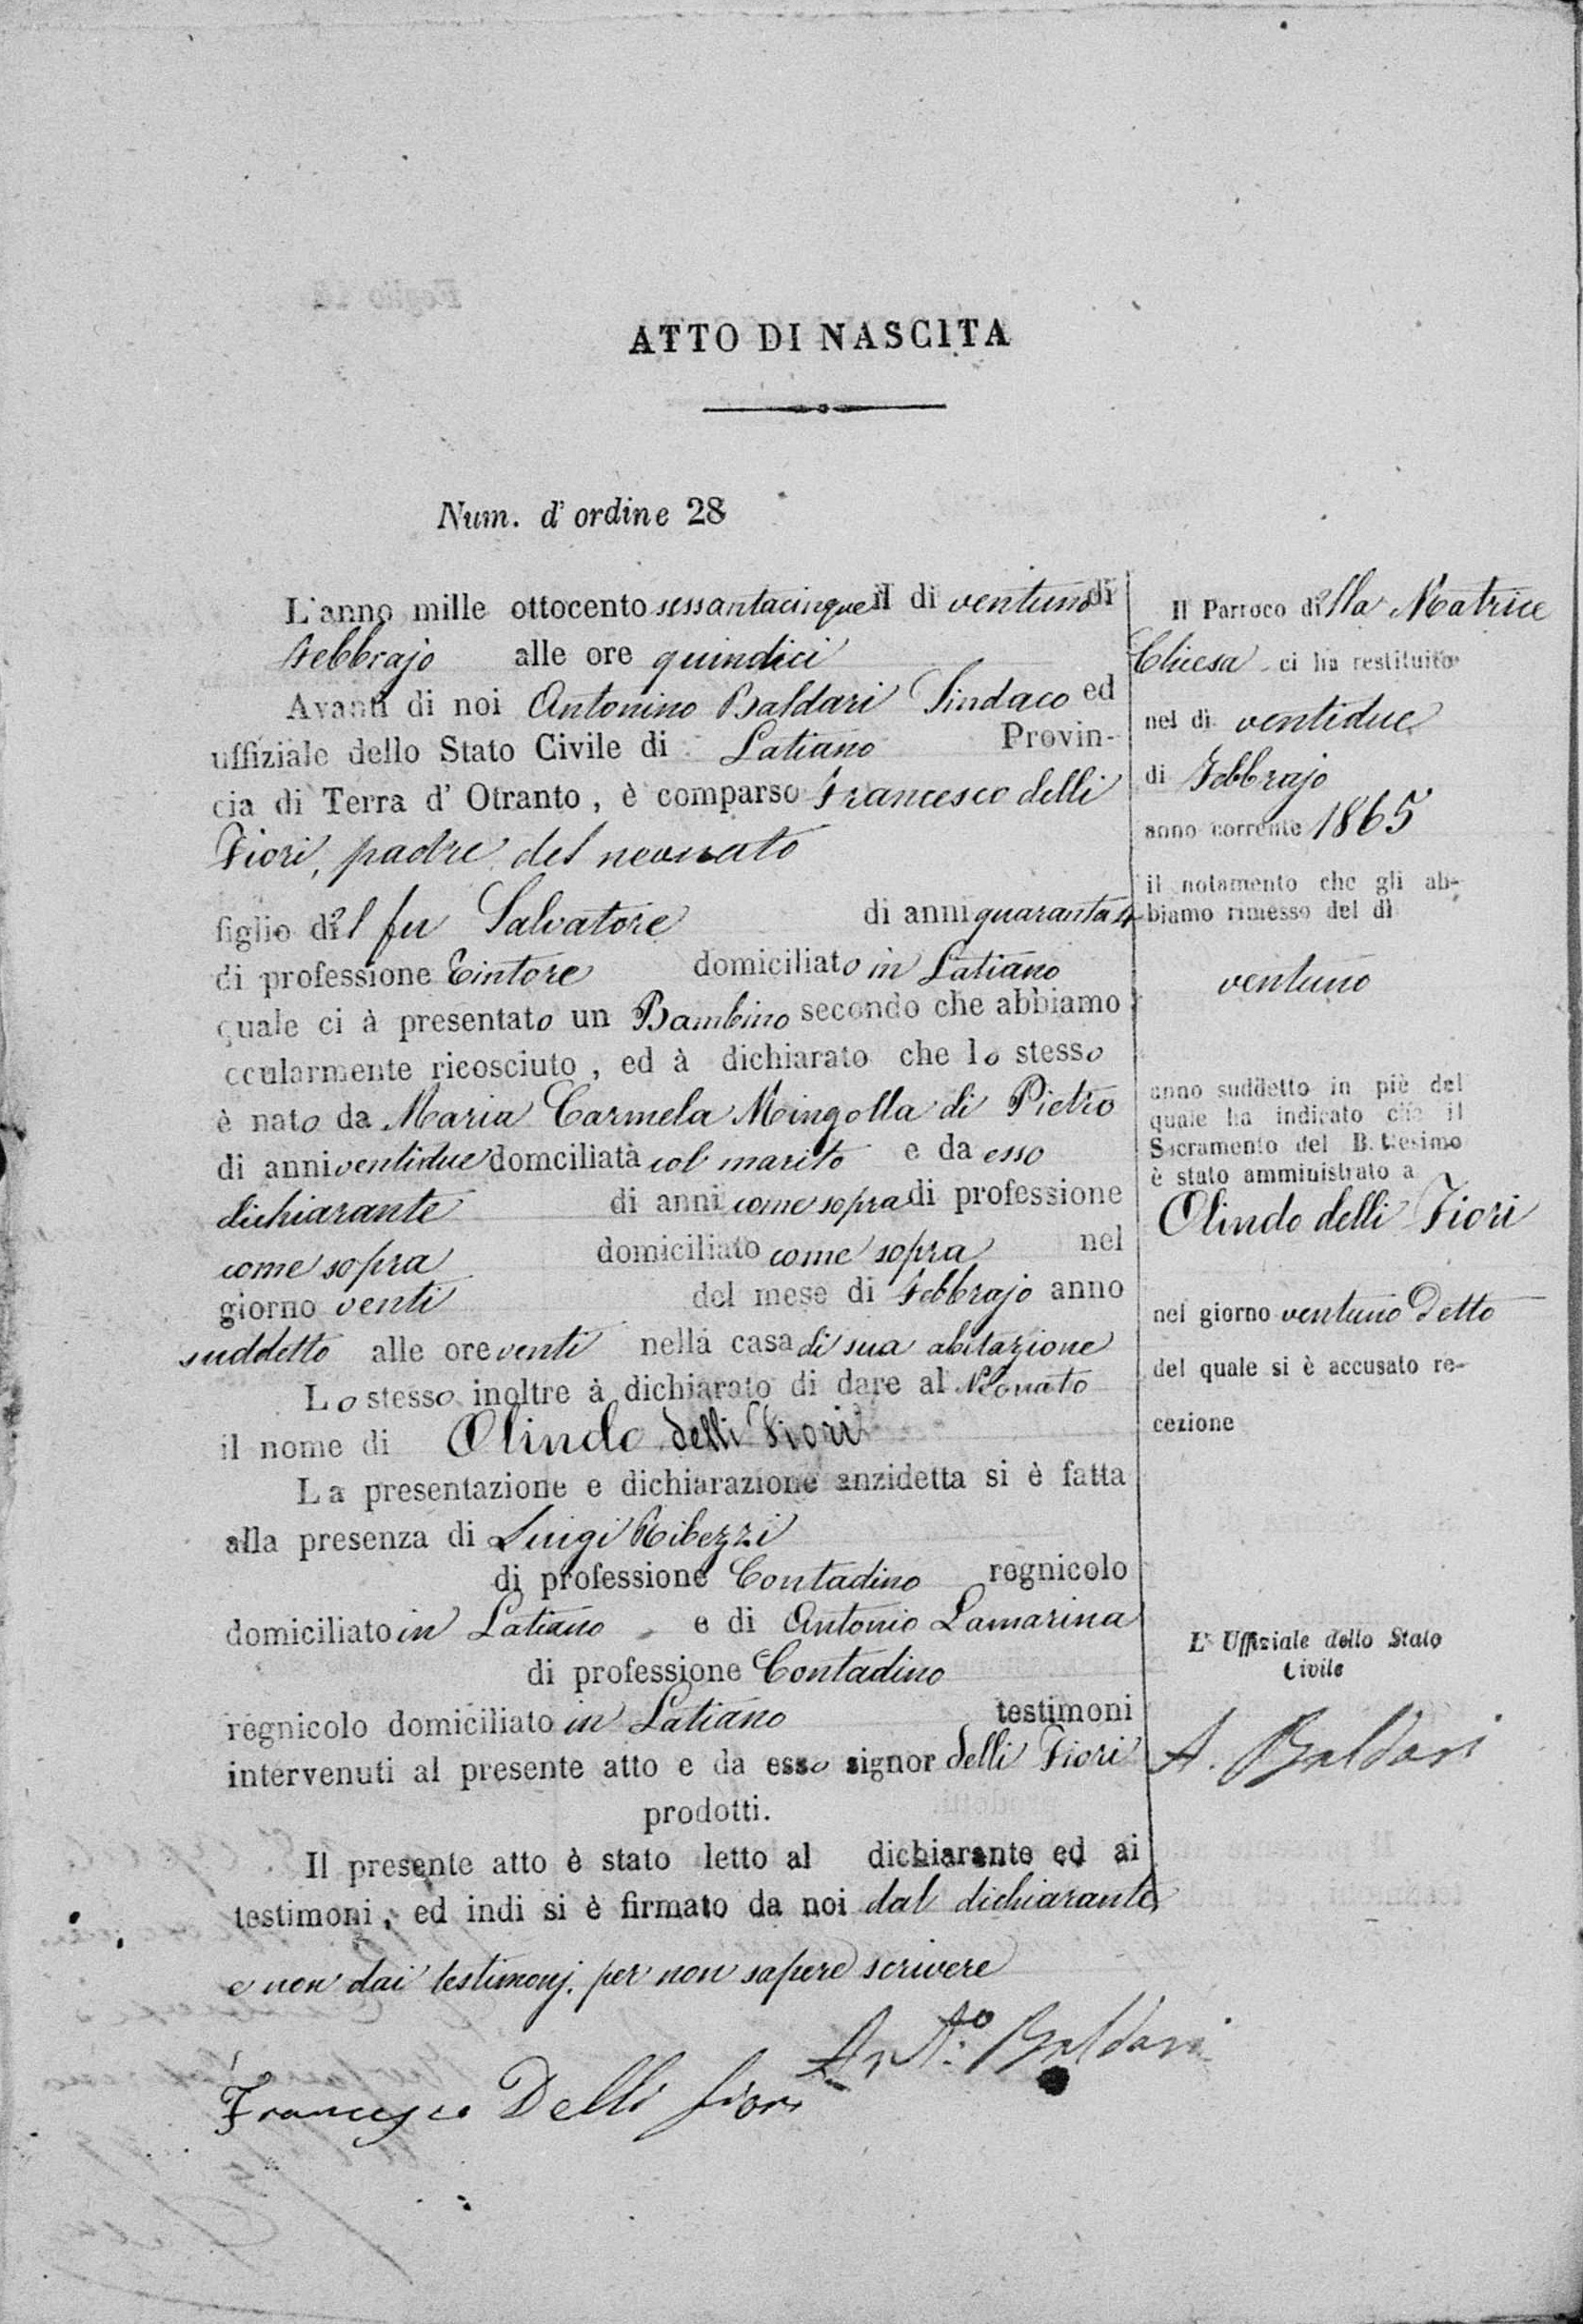 ATTO DI NASCITA
Num. d' ordine 28
L'anno mille ottocento sessantacinque il di ventuno di
Febbrajo alle ore quindici
Avanti di noi Antonino Baldari Sindaco ed
uffiziale dello Stato Civile di Latiano Provin-
cia di Terra d' Otranto, è comparso Francesco delli
Fiori, padre del neonato
figlio del fu Salvatore di anni quaranta4
di professione Tintore domiciliato in Latiano
quale ci à presentato un Bambino secondo che abbiamo
ocularmente ricosciuto, ed à dichiarato che lo stesso
è nato da Maria Carmela Mingolla di Pietro
di anni ventidue domciliata col marito e da esso
dichiarante di anni come sopra di professione
come sopra domiciliato come sopra nel
giorno venti del mese di Febbrajo anno
suddetto alle ore venti nella casa di sua abitazione
Lo stesso inoltre à dichiarato di dare al Neonato
il nome di Olindo delli Fiori
La presentazione e dichiarazione anzidetta si è fatta
alla presenza di Luigi Ribezzi
di professione Contadino regnicolo
domiciliato in Latiano e di Antonio Lamarina
di professione Contadino
regnicolo domiciliato in Latiano testimoni
intervenuti al presente atto e da esso signor delli Fiori
prodotti.
Il presente atto è stato letto al dichiarante ed ai
testimoni, ed indi si è firmato da noi dal dichiarante,
e non dai testimonj per non sapere scrivere
Ant.o Baldari
Francesco Delli fiori
Il Parroco della Matrice
Chiesa ci ha restituito
nel di ventidue
di Febbrajo
anno corrente 1865
il notamento che gli ab-
biamo rimesso del dì
ventuno
anno suddetto in piè del
quale ha indicato che il
Sacramento del B.ttesimo
è stato amministrato a
Olindo delli Fiori
nel giorno ventuno detto
del quale si è accusato re-
cezione
L' Uffiziale dello Stato
Civile
A. Baldari